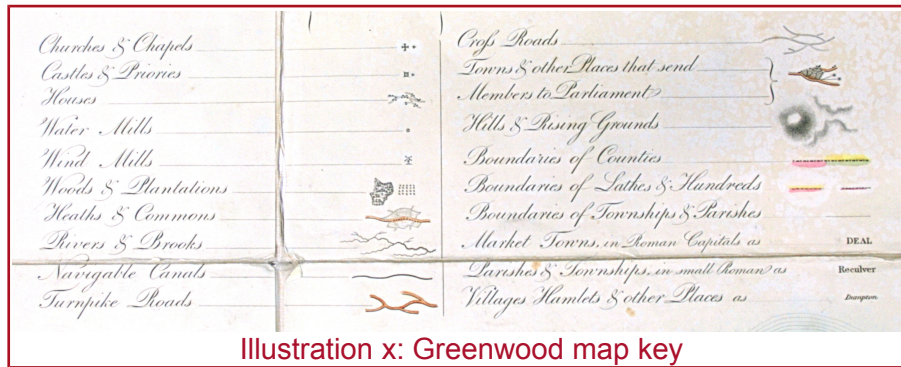 Churches & Chapels
Castles & Priories
Houses
Water Mills
Wind Mills
Woods & Plantations
Heaths & Commons
Rivers & Brooks
Navigable Canals
Turnpike Roads
Croſs Roads
Towns & other Places that send
Members to Parliament
Hills & Rising Grounds
Boundaries of Counties
Boundaries of Lathes & Hundreds
Boundaries of Townships & Parishes
Market Towns, in Roman Capitals as DEAL
Parishes & Townships, in small Roman as Reculver
Villages Hamlets & other Places as
Illustration x: Greenwood map key